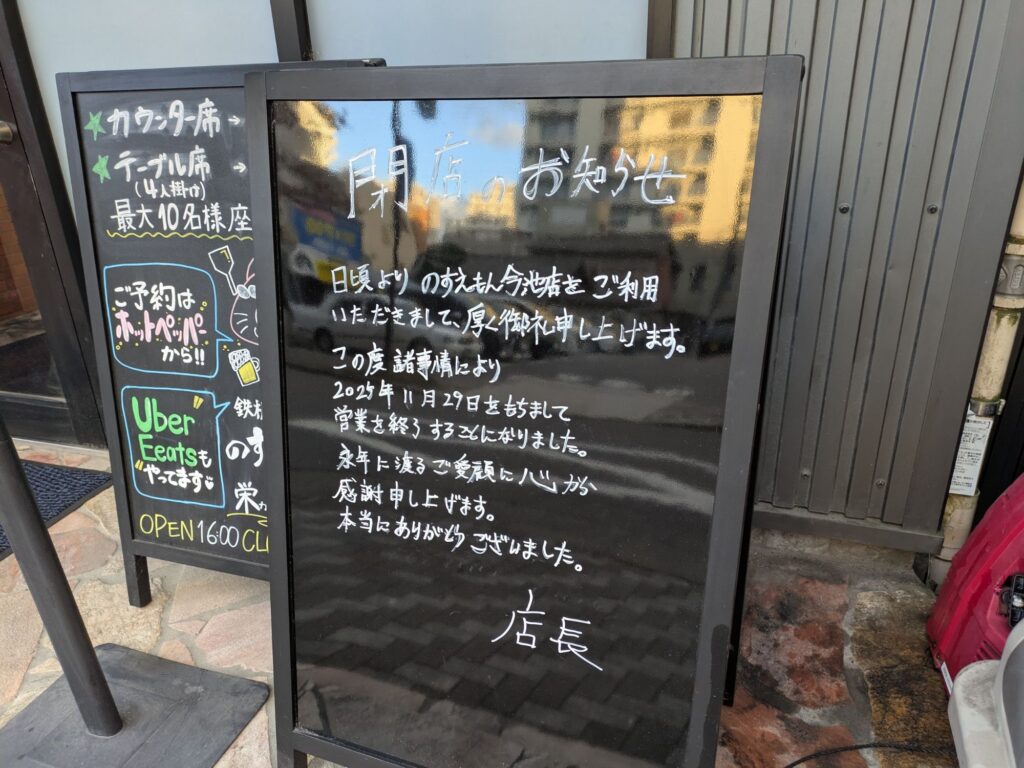 カウンター席→
テーブル席→
(4人掛け)
最大10名様座
ご予約は
ホットペッパー
から!!
Uber
Eeatsも
やってます
鉄
のす
栄
OPEN 16:00 CL
閉店のお知らせ
日頃より のすえもん今池店を ご利用
いただきまして、厚く御礼申し上げます。
この度 諸事情により
2025年11月29日をもちまして
営業を終了することになりました。
永年に渡るご愛顧に心から
感謝申し上げます。
本当にありがとうございました。
店長